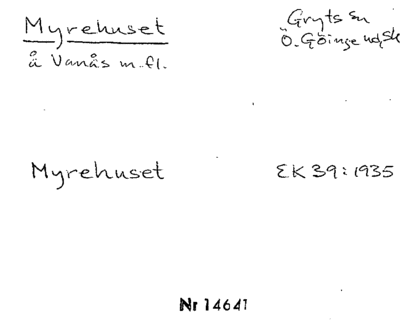 Myrehuset
Gryts sn
å Vanås m.fl.
Ö. Göinge hd, Sk
Myrehuset
EK 39:1935
Nr 14641